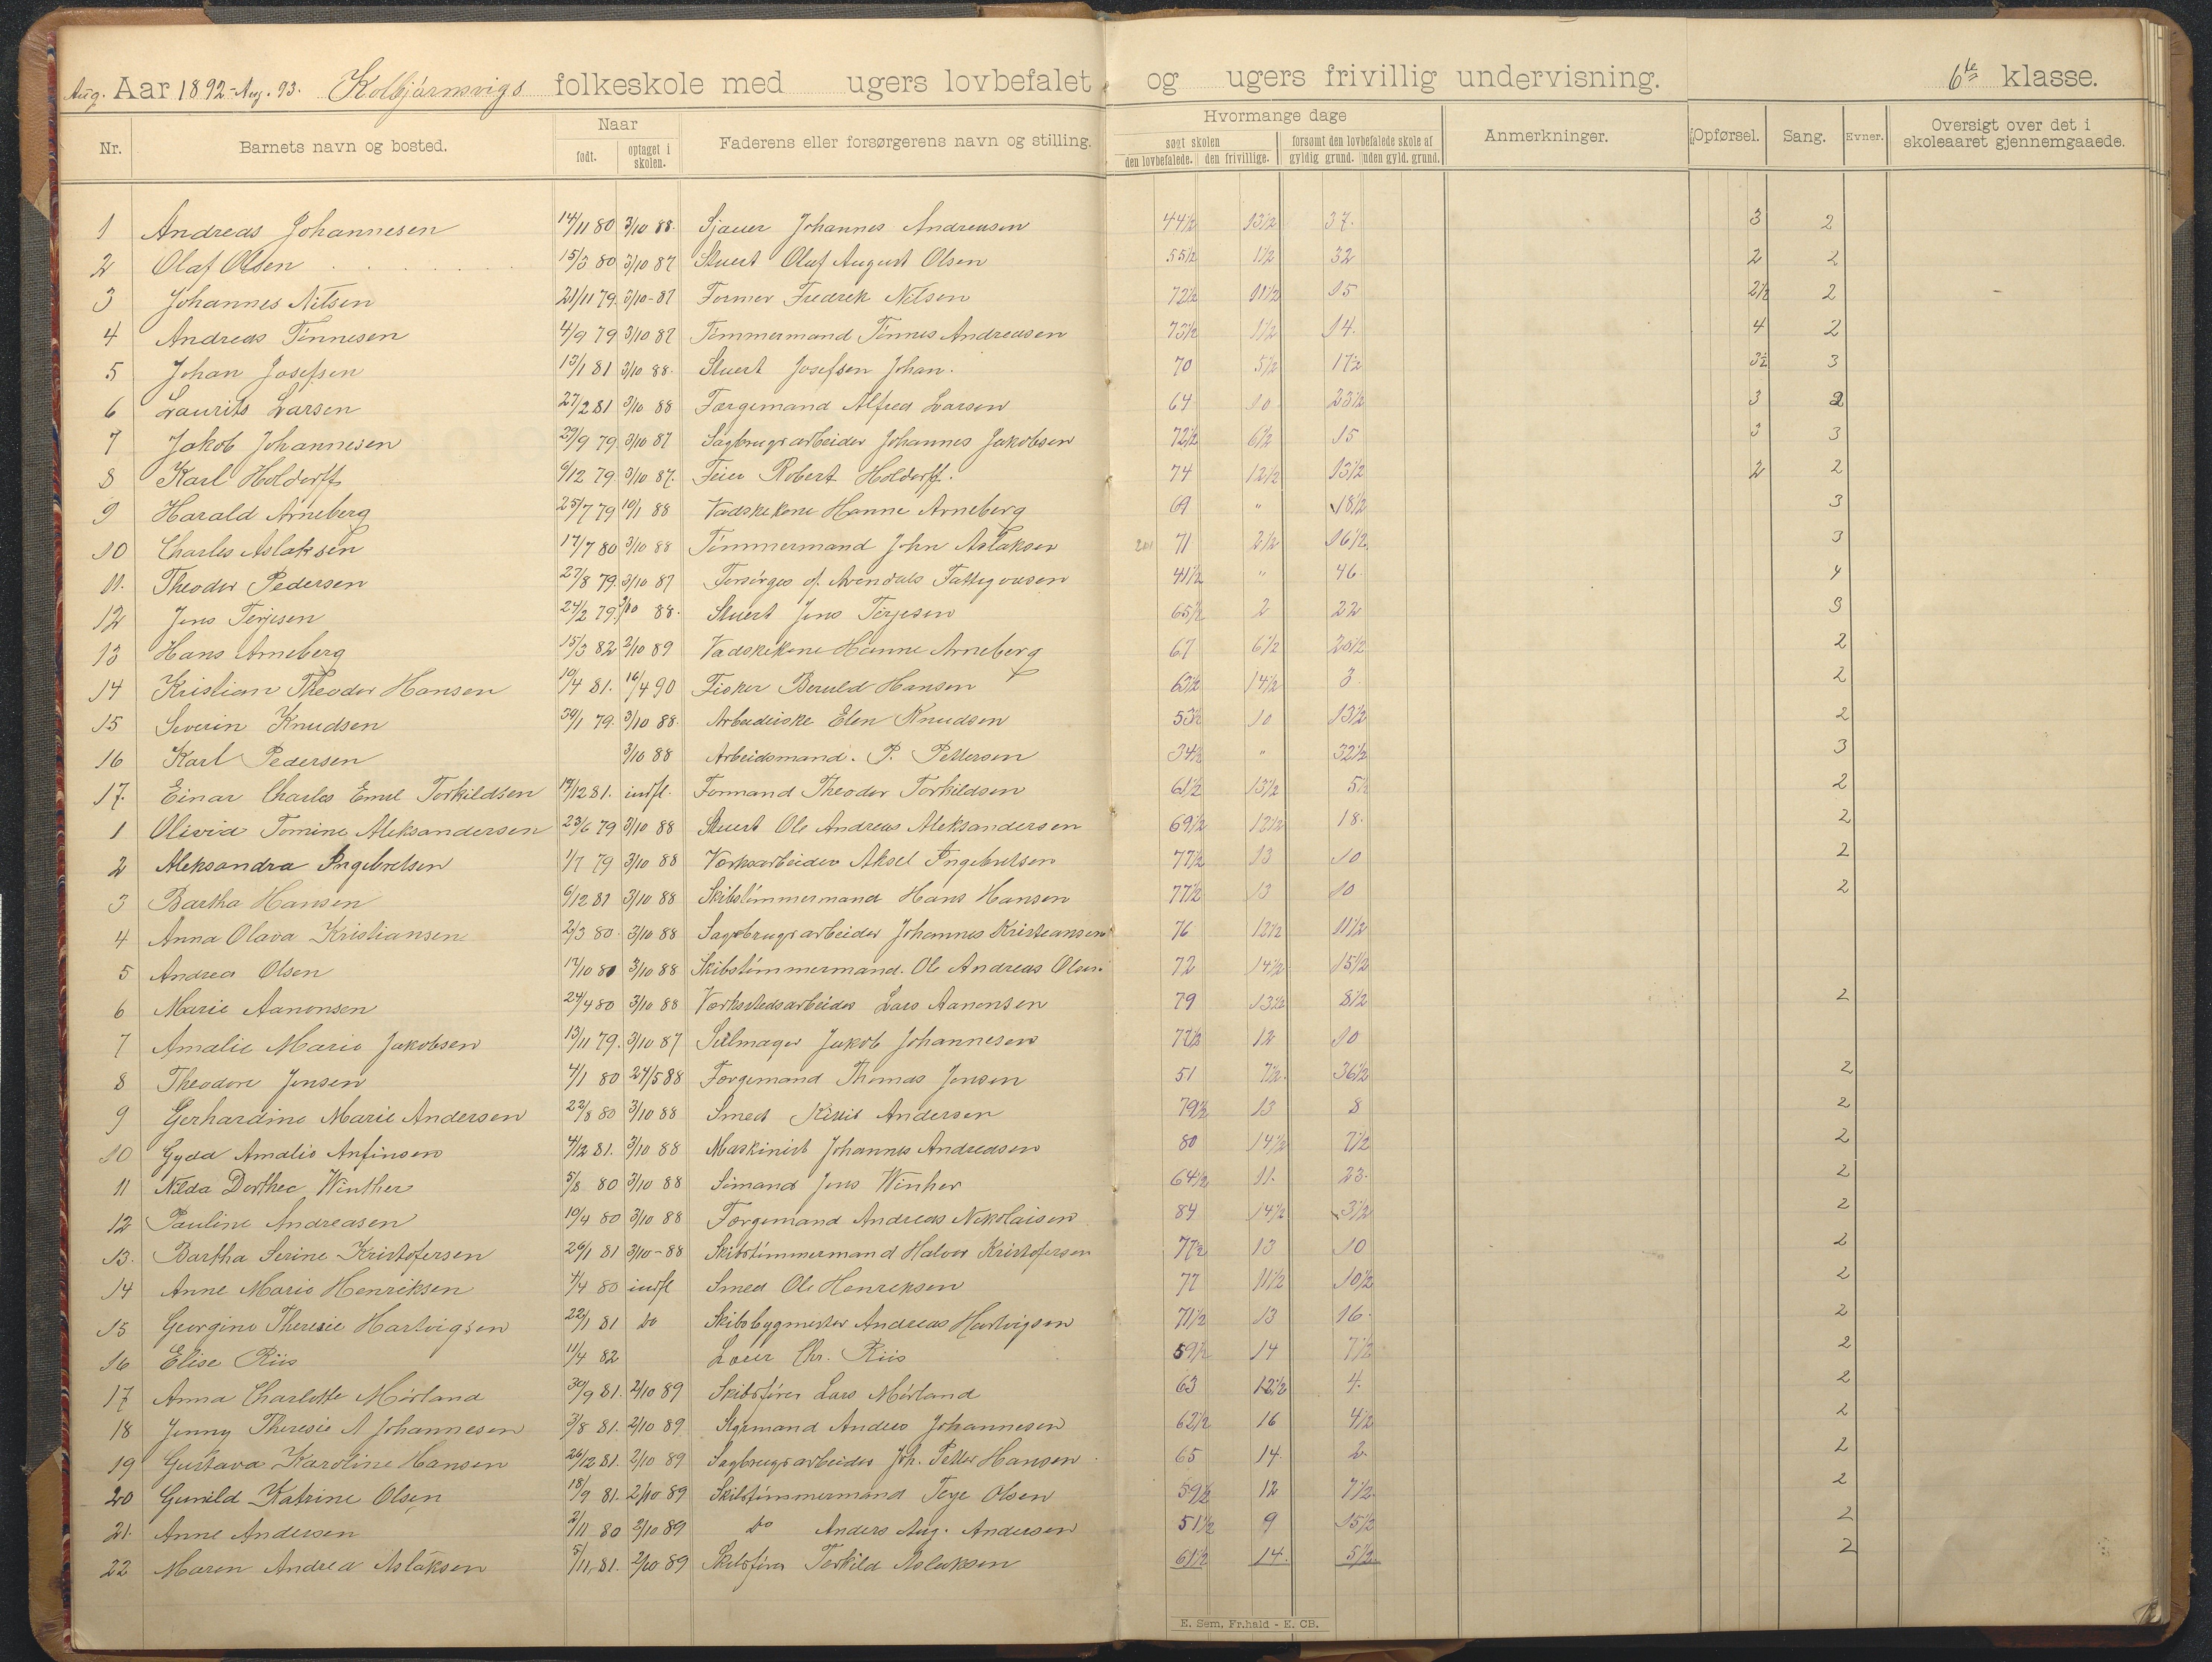 Aug. Aar 1892-Aug. 93. Kolbjørnsvigs folkeskole med ugers lovbefalet og ugers frivillig undervisning. 6te klasse.
Nr. Barnets navn og bosted. Naar født. optaget i skolen. Faderens eller forsørgerens navn og stilling. Hvormange dage søgt skolen den lovbefalede. den frivillige. forsømt den lovbefalede skole af gyldig grund. uden gyld. grund. Anmerkninger. Opførsel. Sang. Evner. Oversigt over det i skoleaaret gjennemgaaede.
1 Andreas Johannesen 14/11 80 3/10 88. Sjauer Johannes Andreasen 44 1/2 13 1/2 37. 3 2
2 Olaf Olsen 15/3 80 3/10 87 Stuert Olaf August Olsen 55 1/2 1 1/2 32 2 2
3 Johannes Nilsen 21/11 79. 3/10-87 Former Fredrik Nilsen 72 1/2 11 1/2 15 2 1/2 2
4 Andreas Tønnesen 4/9 79 3/10 87 Tømmermand Tønnes Andreasen 73 1/2 1 1/2 14. 4 2
5 Johan Josefsen 13/1 81 3/10 88. Stuert Josefsen Johan. 70 5 1/2 17 1/2 3 1/2 3
6 Laurits Larsen 27/2 81 3/10 88 Færgemand Alfred Larsen 64 10 23 1/2 3 2
7 Jakob Johannesen 29/9 79 3/10 87 Sagbrugsarbeider Johannes Jakobsen 72 1/2 6 1/2 15 3 3
8 Karl Holdorff 6/12 79. 3/10 87. Feier Robert Holdorff. 74 12 1/2 13 1/2 2 2
9 Harald Arneberg 25/7 79 10/1 88 Vadskekone Hanne Arneberg 69 " 18 1/2 3
10 Charles Aslaksen 17/7 80 3/10 88 Tømmermand John Aslaksen 71 2 1/2 16 1/2 3
11. Theodor Pedersen 27/8 79. 3/10 87 Forsørges af Arendals Fattigvæsen 41 1/2 " 46. 4
12 Jens Terjesen 24/2 79. 3/10 88. Stuert Jens Terjesen 65 1/2 2 22 3
13 Hans Arneberg 15/3 82 2/10 89 Vadskekone Hanne Arneberg 67 6 1/2 20 1/2 2
14 Kristian Theodor Hansen 10/4 81. 16/4 90 Fisker Beruld Hansen 63 1/2 14 1/2 3. 2
15 Severin Knudsen 30/1 79. 3/10 88. Arbeiderske Elen Knudsen 53 1/2 10 13 1/2 2
16 Karl Pedersen 3/10 88 Arbeidsmand. P. Pettersen 34 1/2 " 32 1/2 3
17. Einar Charles Emil Torkildsen 14/12 81. indfl. Formand Theodor Torkildsen 61 1/2 13 1/2 5 1/2 2
1 Olivia Tomine Aleksandersen 23/6 79 3/10 88 Stuert Ole Andreas Aleksandersen 69 1/2 12 1/2 18. 2
2 Aleksandra Ingebretsen 1/7 79 3/10 88 Verksarbeider Aksel Ingebretsen 77 1/2 13 10 2
3 Bartha Hansen 6/12 81 3/10 88 Skibstømmermand Hans Hansen 77 1/2 13 10 2
4 Anna Olava Kristiansen 2/3 80. 3/10 88 Sagbrugsarbeider Johannes Kristiansen 76 12 1/2 11 1/2
5 Andrea Olsen 17/10 80 3/10 88 Skibstømmermand. Ole Andreas Olsen. 72 14 1/2 15 1/2
6 Marie Aanonsen 24/4 80 3/10 88 Verkstedsarbeider Lars Aanonsen 79 13 1/2 8 1/2 2
7 Amalie Marie Jakobsen 13/11 79. 3/10 87 Seilmager Jakob Johannesen 77 1/2 12 10
8 Theodore Jensen 4/1 80 24/5 88 Færgemand Thomas Jensen 51 7 1/2. 36 1/2 2
9 Gerhardine Marie Andersen 22/8 80 3/10 88 Smed Andersen 79 1/2 13 8 2
10 Gyda Amalie Anfinsen 4/12 81. 3/10 88 Maskinist Johannes Andreasen 80 14 1/2 7 1/2 2
11 Nilda Dorthee Winther 5/8 80 3/10 88 Sømand Jens Winther 64 1/2 11. 23. 2
12 Pauline Andreasen 10/4 80 3/10 88 Færgemand Andreas Nikolaisen 84 14 1/2 3 1/2 2
13. Bartha Serine Kristofersen 26/1 81 3/10-88 Skibstømmermand Halvor Kristofersen 77 1/2 13 10 2
14 Anne Marie Henriksen 7/4 80 indfl Smed Ole Henriksen 77 11 1/2 10 1/2 2
15 Georgine Theresie Hartvigsen 22/1 81 Do Skibsbygmester Andreas Hartvigsen 71 1/2 13 16. 2
16 Elise Riis 11/4 82 Chr. Riis 59 1/2 14 7 1/2 2
17 Anna Charlotte Mørland 30/9 81. 2/10 89 Skibsfører Lars Mørland 63 12 1/2 4. 2
18 Jenny Theresie A Johannesen 3/8 81. 2/10 89. Styrmand Andreas Johannesen 62 1/2 16 4 1/2 2
19 Gustava Karoline Hansen 26/12 81. 2/10 89 Sagbrugsarbeider Joh. Petter Hansen. 65 14. 2. 2
20 Gunild Katrine Olsen 18/9 81. 2/10 89 Skibstømmermand Terje Olsen 59 1/2 12 7 1/2. 2
21. Anne Andersen 2/11 80 2/10 89 Do Anders Aug. Andersen 51 1/2 9 15 1/2 2
22 Maren Andrea Aslaksen 5/11. 81. 2/10 89 Skibsfører Torkild Aslaksen 61 1/2 14. 5 1/2. 2
E. Sem, Fr.hald - E. CB.